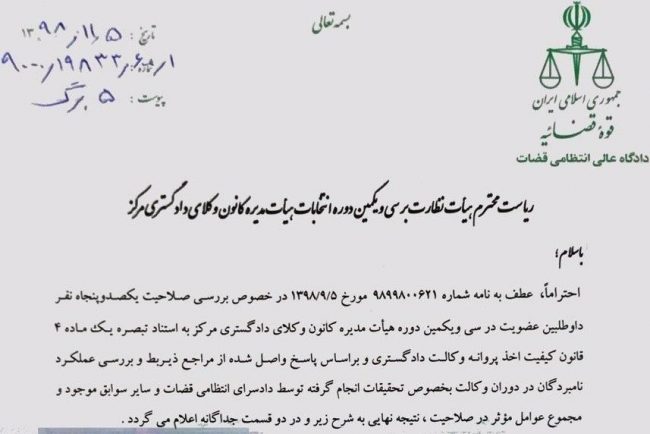 بسمه تعالی
جمهوری اسلامی ایران
قوه قضائیه
دادگاه عالی انتظامی قضات
تاریخ : ۱۳۹۸/۱۱/۵
شماره :
پیوست : ۵ برگ
ریاست محترم هیأت نظارت بر سی و یکمین دوره انتخابات هیأت مدیره کانون وکلای دادگستری مرکز
باسلام ؛
احتراماً، عطف به نامه شماره ۹۸۹۹۸۰۰۶۲۱ مورخ ۱۳۹۸/۹/۵ در خصوص بررسی صلاحیت یکصدوپنجاه نفر
داوطلبین عضویت در سی ویکمین دوره هیأت مدیره کانون وکلای دادگستری مرکز به استناد تبصره یک ماده ۴
قانون کیفیت اخذ پروانه وکالت دادگستری و براساس پاسخ واصل شده از مراجع ذیربط و بررسی عملکرد
نامبردگان در دوران وکالت بخصوص تحقیقات انجام گرفته توسط دادسرای انتظامی قضات و سایر سوابق موجود و
مجموع عوامل مؤثر در صلاحیت ، نتیجه نهایی به شرح زیر و در دو قسمت جداگانه اعلام می گردد .